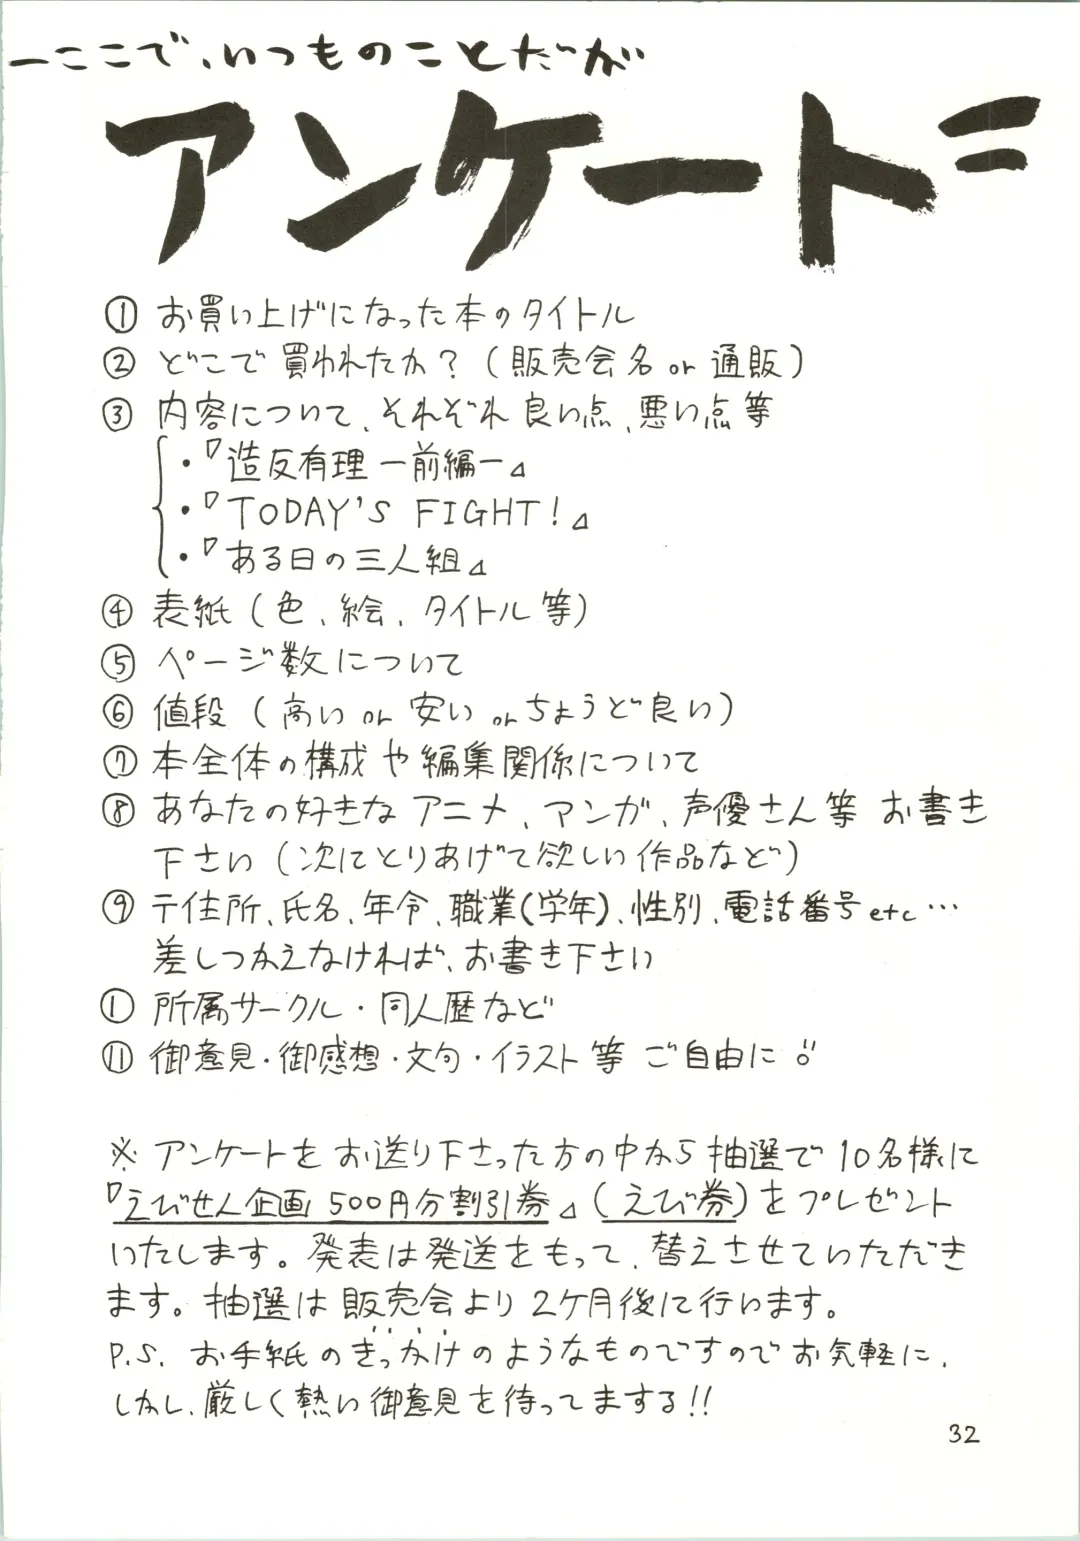 ーここで、いつものことだが
アンケート=
① お買い上げになった本のタイトル
② どこで買われたか?(販売会名 or 通販)
③ 内容について、それぞれ良い点、悪い点等
・『造反有理 ー前編ー』
・『TODAY'S FIGHT!』
・『ある日の三人組』
④ 表紙(色、絵、タイトル等)
⑤ ページ数について
⑥ 値段(高い or 安い or ちょうど良い)
⑦ 本全体の構成や編集関係について
⑧ あなたの好きなアニメ、マンガ、声優さん等 お書き
下さい(次にとりあげて欲しい作品など)
⑨ 〒住所、氏名、年令、職業(学年)、性別、電話番号etc…
差しつかえなければ、お書き下さい
① 所属サークル・同人歴など
⑪ 御意見・御感想・文句・イラスト等 ご自由に
※ アンケートをお送り下さった方の中から抽選で10名様に
『えびせん企画 500円分割引券』(えび券)をプレゼント
いたします。発表は発送をもって、替えさせていただき
ます。抽選は販売会より2ケ月後に行います。
P.S. お手紙のきっかけのようなものですのでお気軽に、
しかし、厳しく熱い御意見を待ってまする!!
32